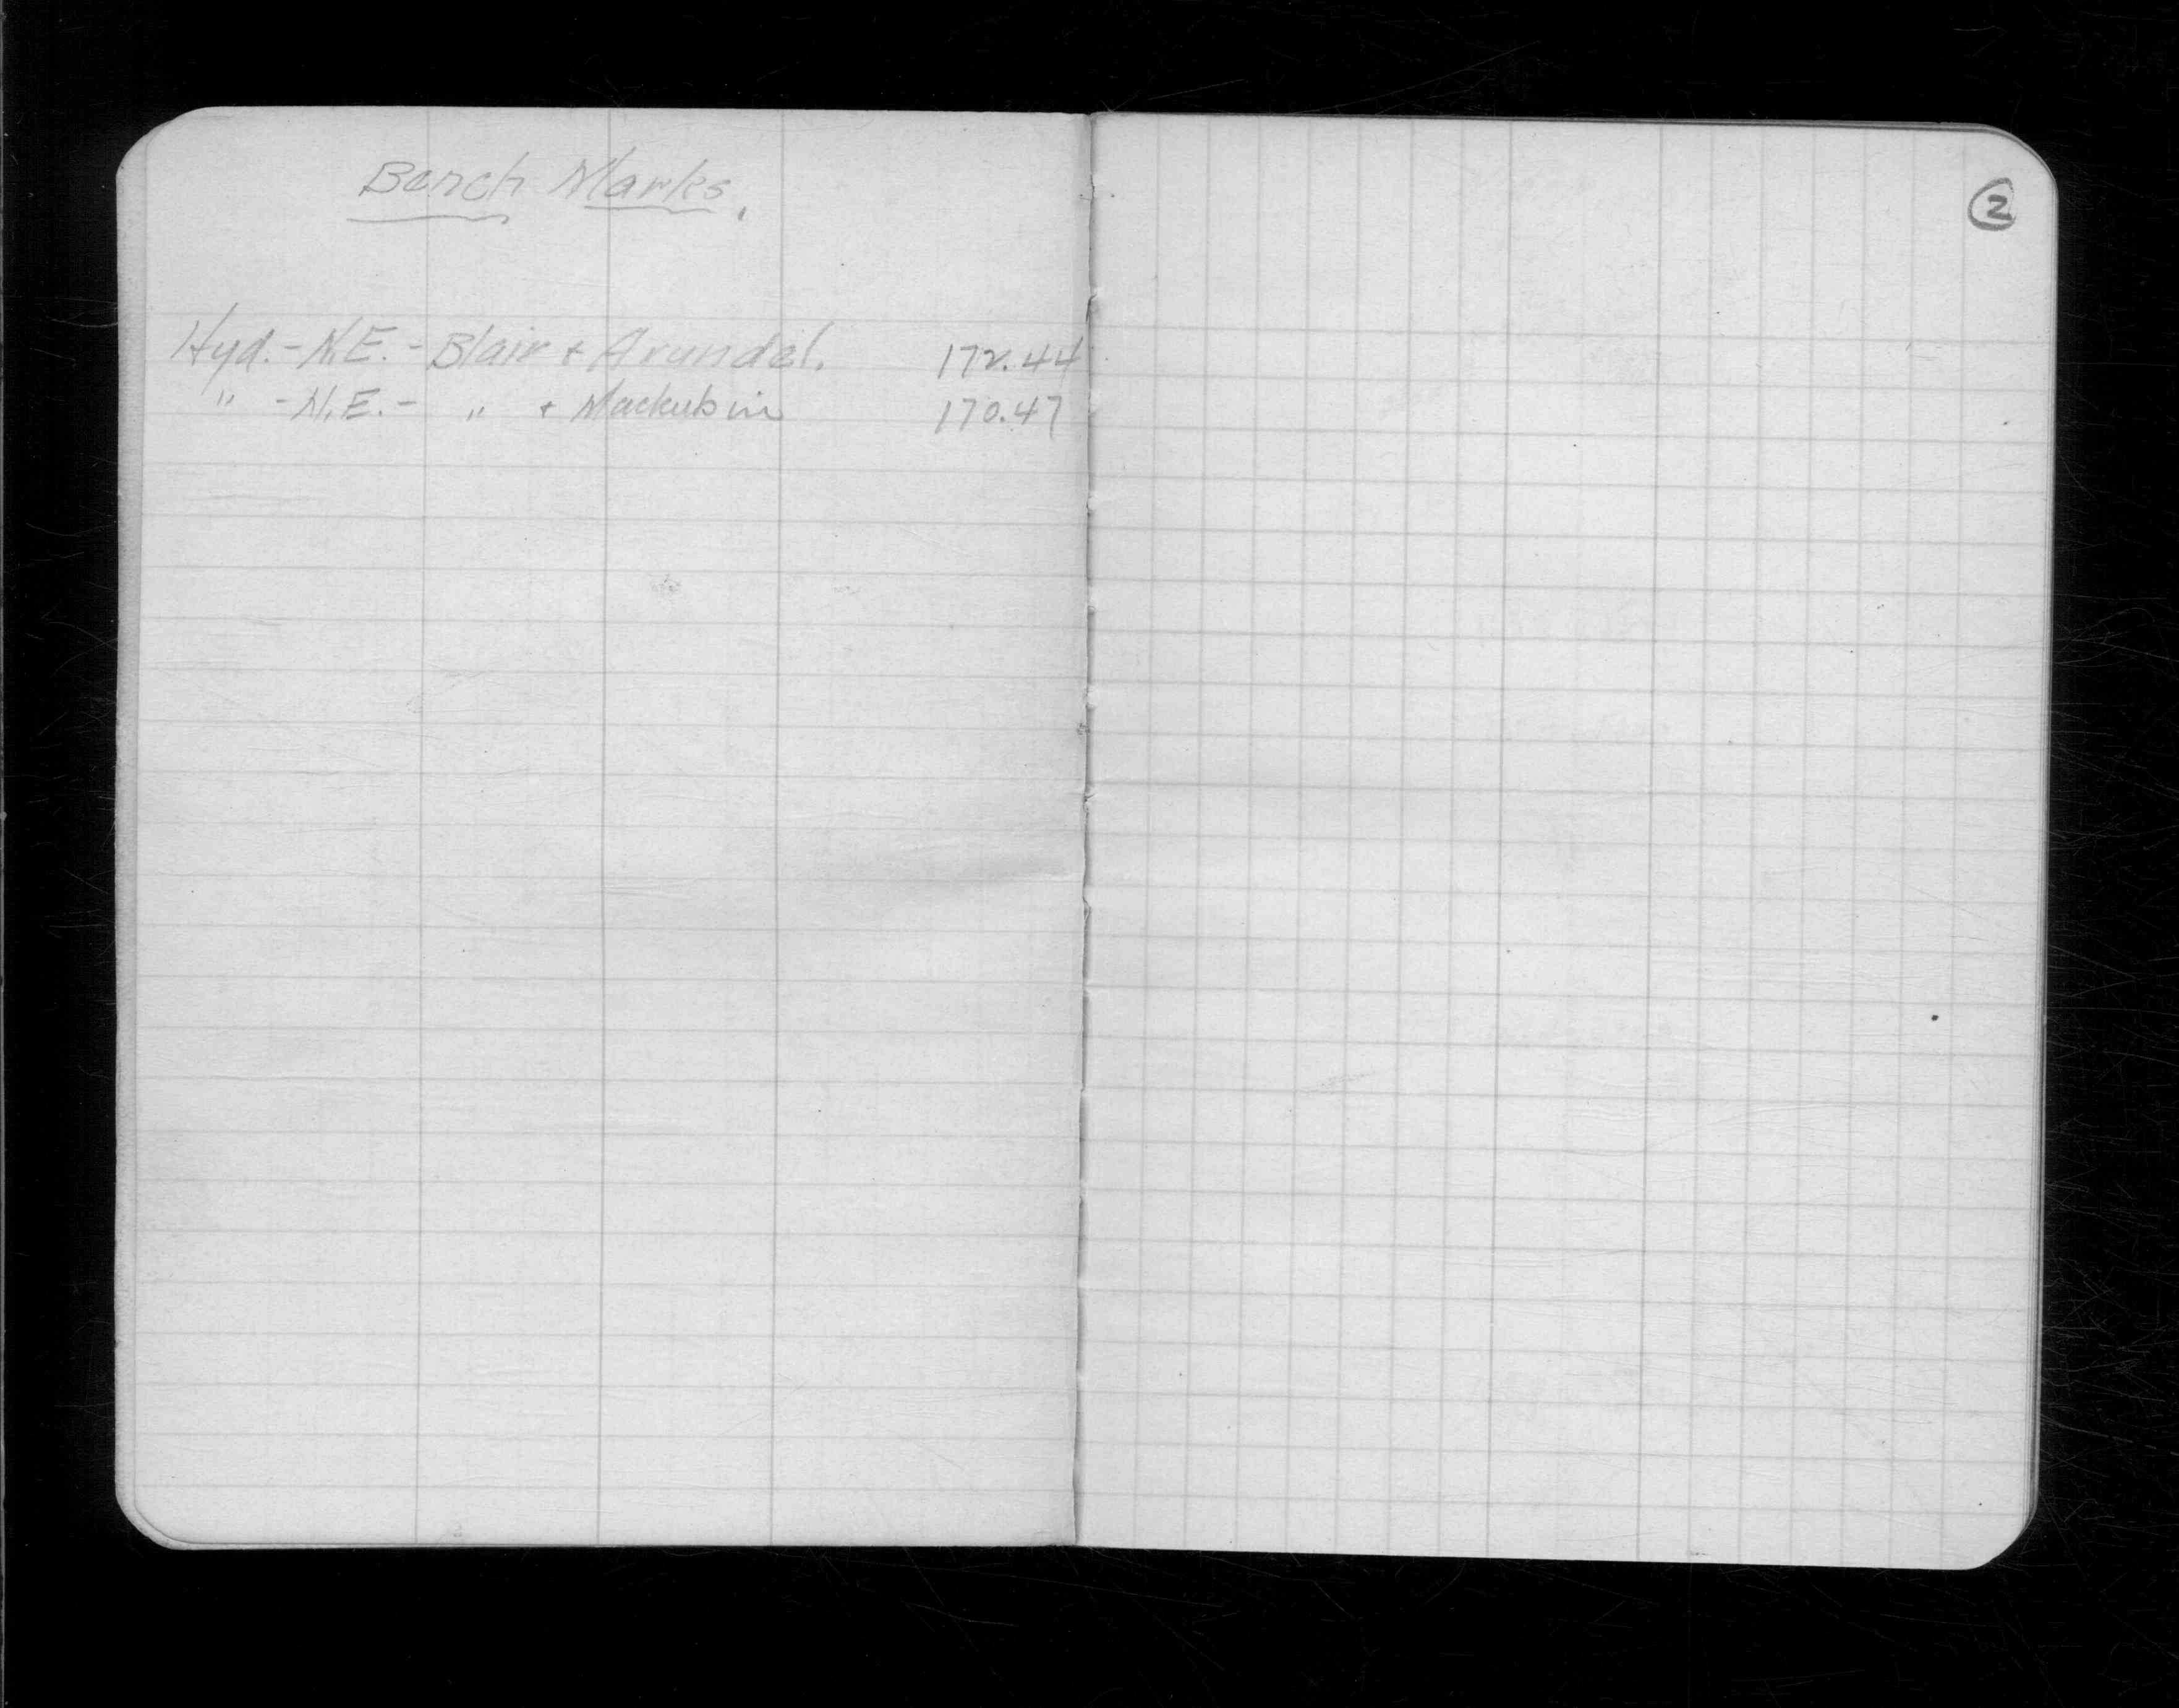 Bench Marks.
Hyd. - N.E. - Blair + Arundel. 172.44
" - N.E. - " + Mackubin 170.47
2